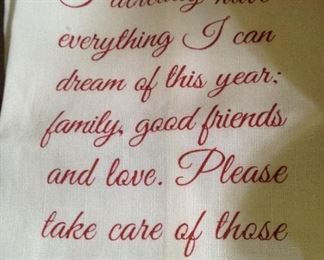 I already have
everything I can
dream of this year:
family, good friends
and love. Please
take care of those